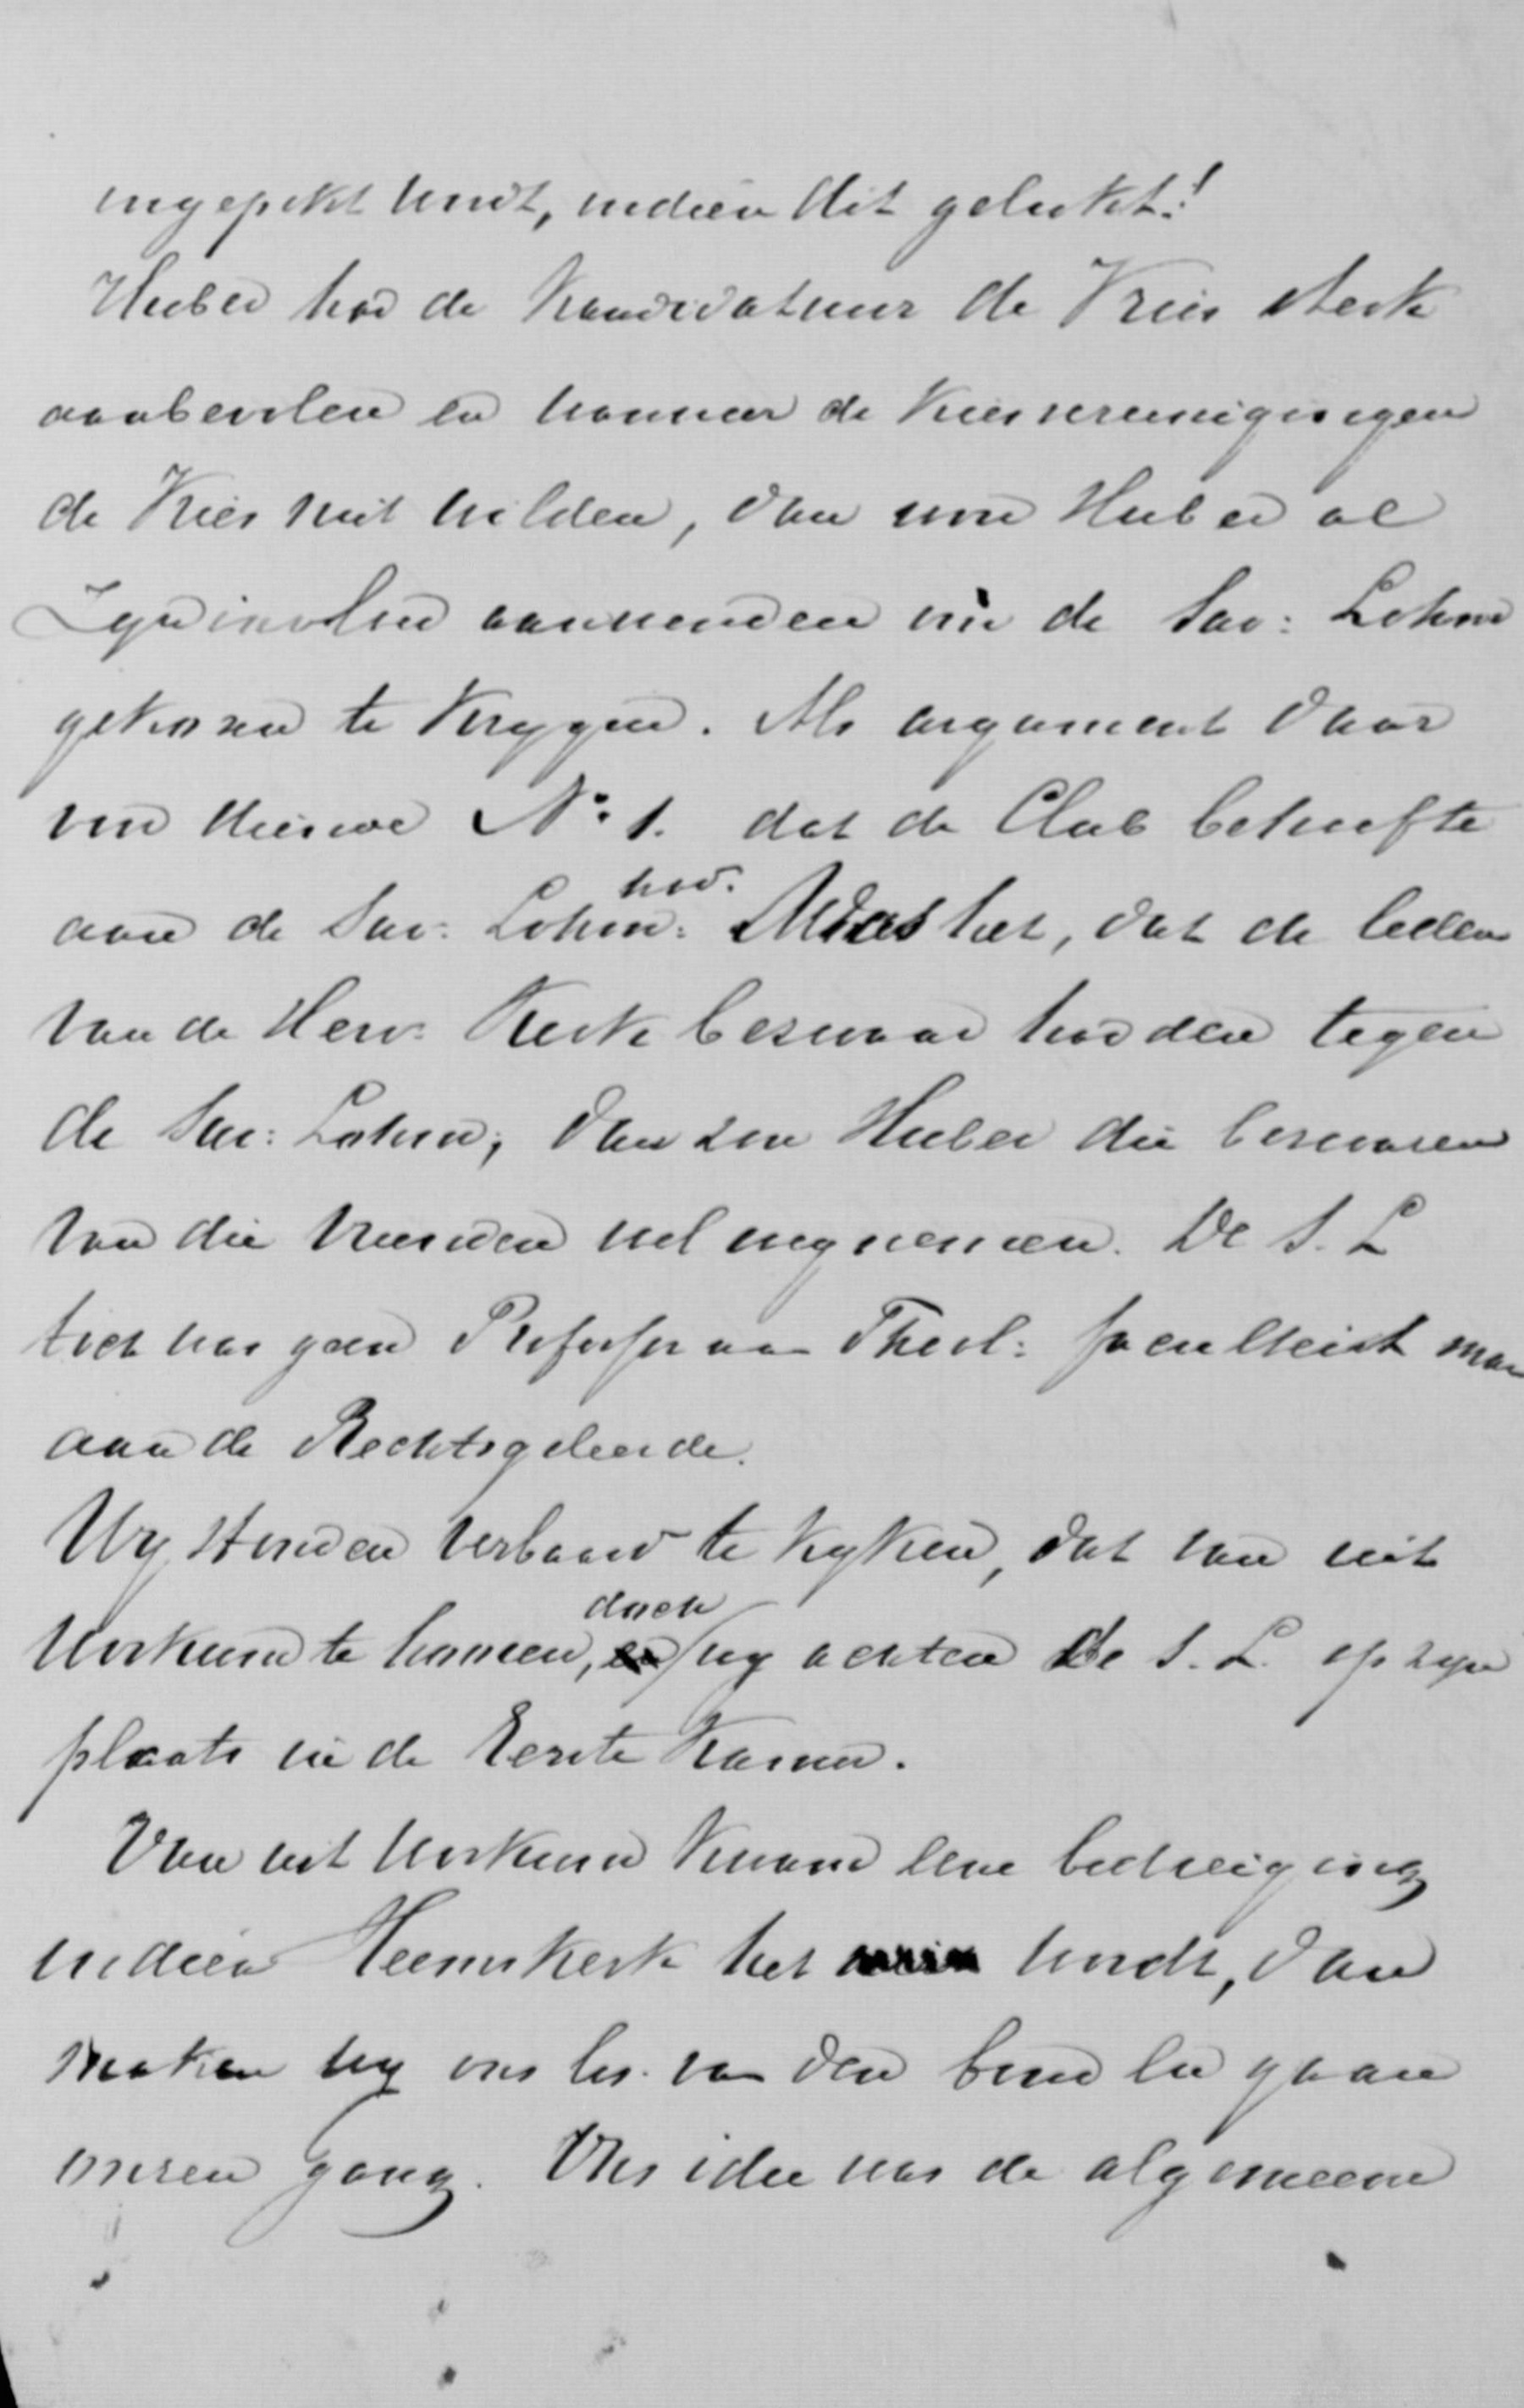 ingepikt wordt, indien dit gelukt!
Huber had de kandidatuur de Vries sterk
aanbevolen en wanneer de kiesvereenigingen
de Vries niet wilden, dan zou Huber al
Zijn invloed aanwenden om de Sav: Lohm
gekozen te krijgen. Als argument daar
voor dienende No. 1. dat de Club behoefte
aan de Sav: Lohm: had. Was het, dat de leden
van de Herv: Kerk bezwaar hadden tegen
de Sav: Lohm; dan zou Huber die bezwaren
van die vrienden wel wegnemen. De S. L
toch was geen Professor aan Theol: faculteit maar
aan de Rechtsgeleerde.
Wij stonden verbaasd te kijken, dat van uit
Workum te hooren, doch wij achten de S. L. op zijn
plaats in de Eerste Kamer.
Van uit Workum kwam eene bedreiging
indien Heemskerk het wordt, dan
maken wij ons los van den bond en gaan
onzen gang. Ons idee was de algemeene